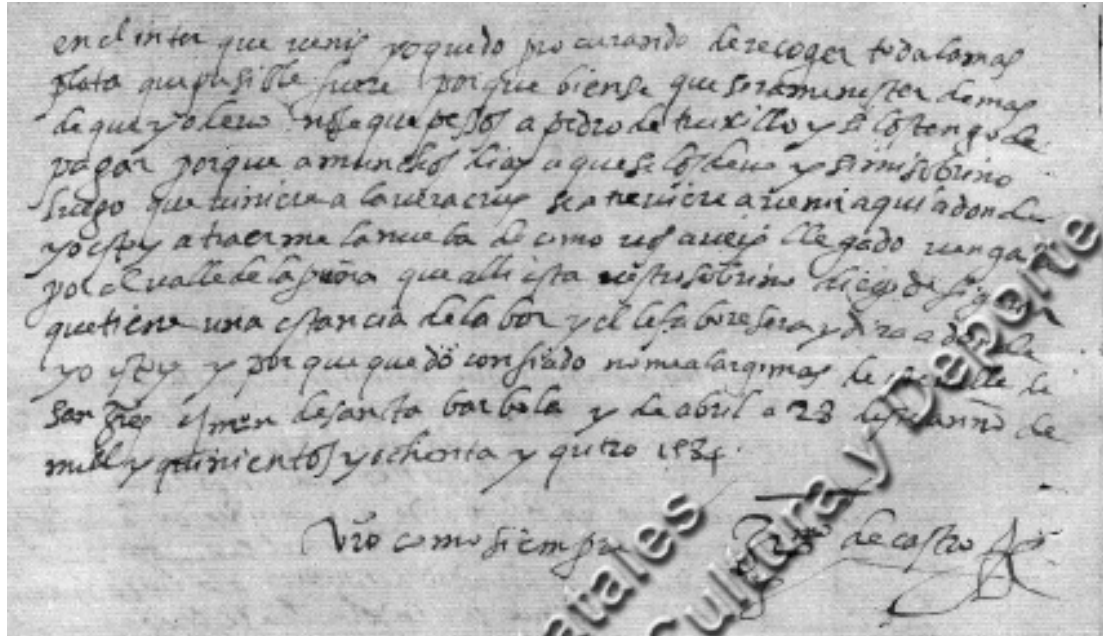 en el inter que venis yo quedo procurando de recoger toda la mas
plata que pusible fuere porque bien se que sera menester demas
de que yo devo no se que pesos a pedro de truxillo y se los tengo de
pagar porque a munchos dias a que se los devo y si mi sobrino
luego que viniere a la veracruz se atreviere a venir aqui adonde
yo estoy a traerme la nueba de como vos aveis llegado venga
por el valle de la que alli esta vro sobrino diego de
que tiene una estancia de labor y el le faboresera y dira adonde
yo estoy y porque quedo confiado no me alargo mas de valle de
san minas de santa barbola y de abril a 23 deste anno de
mill y quinientos y ochenta y quatro 1584
Vro como siempre de castro
atales
Cultura y Deporte